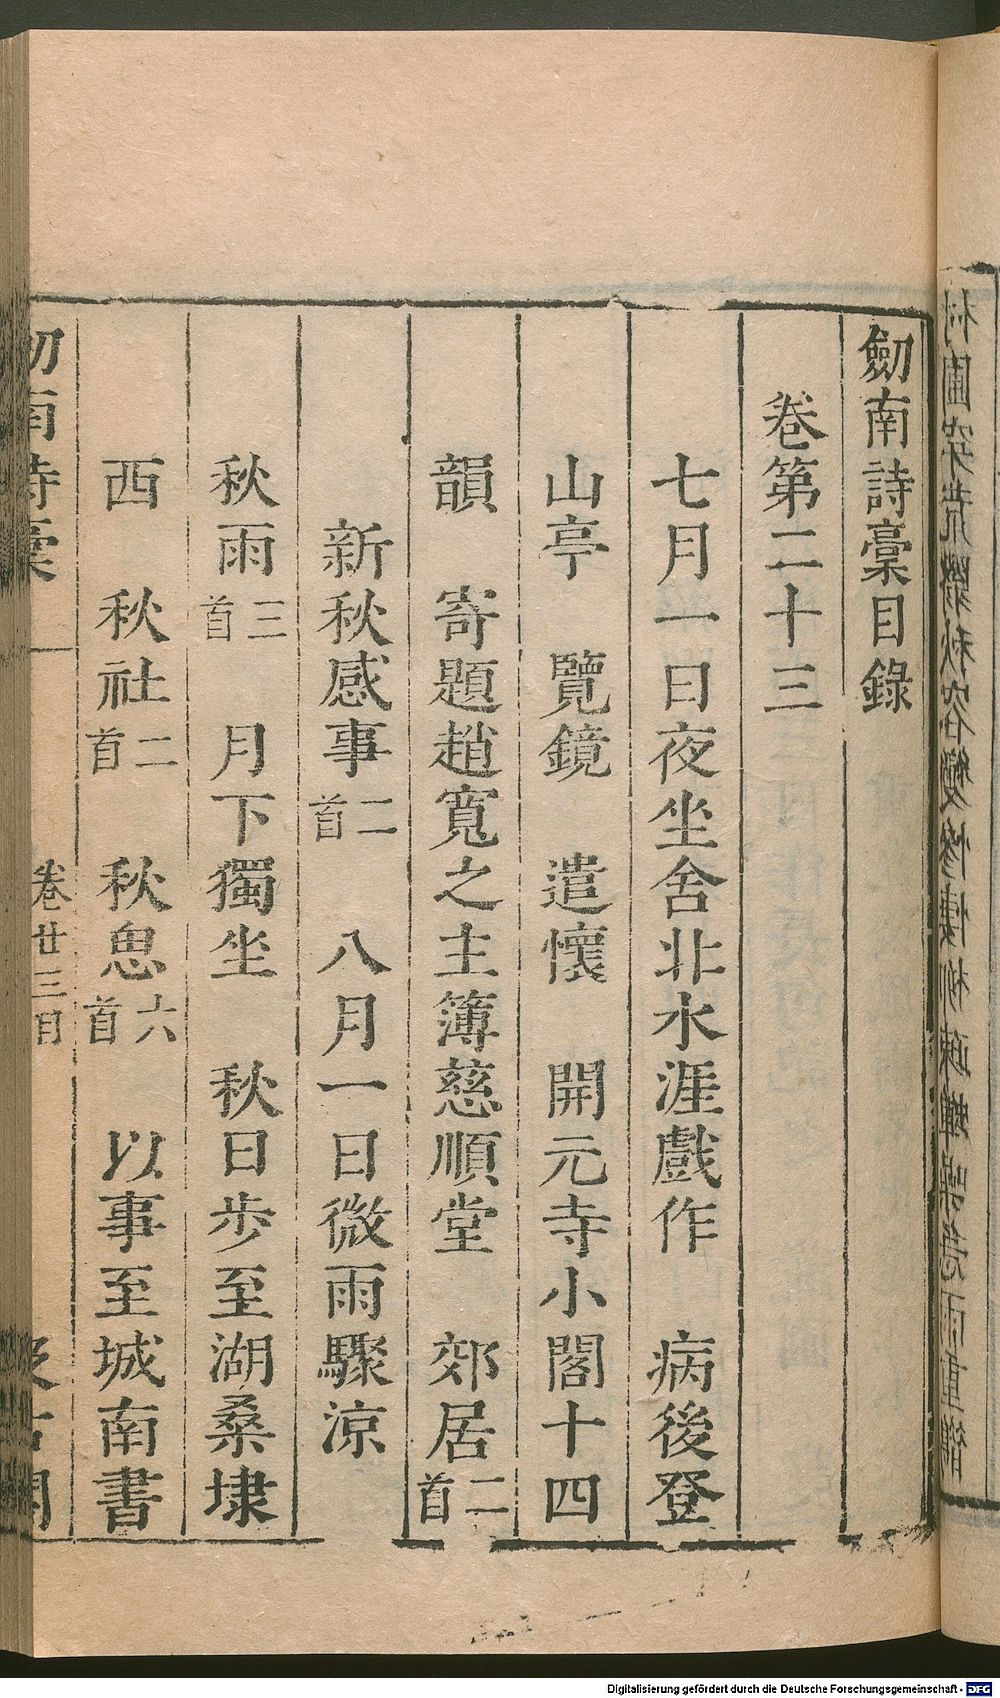 劒南詩稾目錄
卷第二十三
七月一日夜坐舍北水涯戲作　病後登
山亭　覽鏡　遣懷　開元寺小閣十四
韻　寄題趙寬之主簿慈順堂　郊居二首
新秋感事二首　八月一日微雨驟涼
秋雨三首　月下獨坐　秋日步至湖桑埭
西　秋社二首　秋思六首　以事至城南書
劒南詩稾　卷廿三目
Digitalisierung gefördert durch die Deutsche Forschungsgemeinschaft - DFG